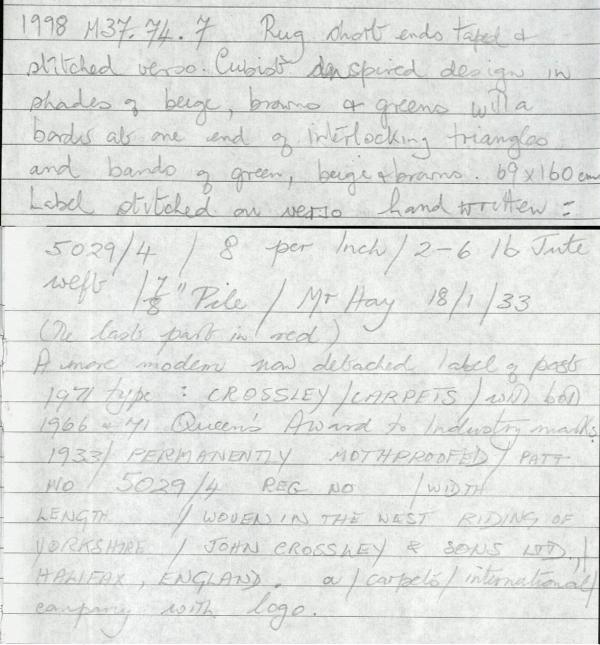 1998 M37.74.7 Rug short ends taped &
stitched verso. Cubist inspired design in
shades of beige, browns & greens with a
border at one end of interlocking triangles
and bands of green, beige & browns. 69 x 160 cm
Label stitched on verso hand written =
5029/4 / 8 per Inch / 2-6 lb Jute
weft / 7/8" Pile / Mr Hay 18/1/33
(The last part in red)
A more modern now detached label of post
1971 type : CROSSLEY / CARPETS / with both
1966 & 71 Queen's Award to Industry marks
1933 / PERMANENTLY MOTHPROOFED / PATT
NO 5029/4 REG NO / WIDTH
LENGTH / WOVEN IN THE WEST RIDING OF
YORKSHIRE / JOHN CROSSLEY & SONS LTD., /
HALIFAX, ENGLAND. a / carpets / international /
company with logo.